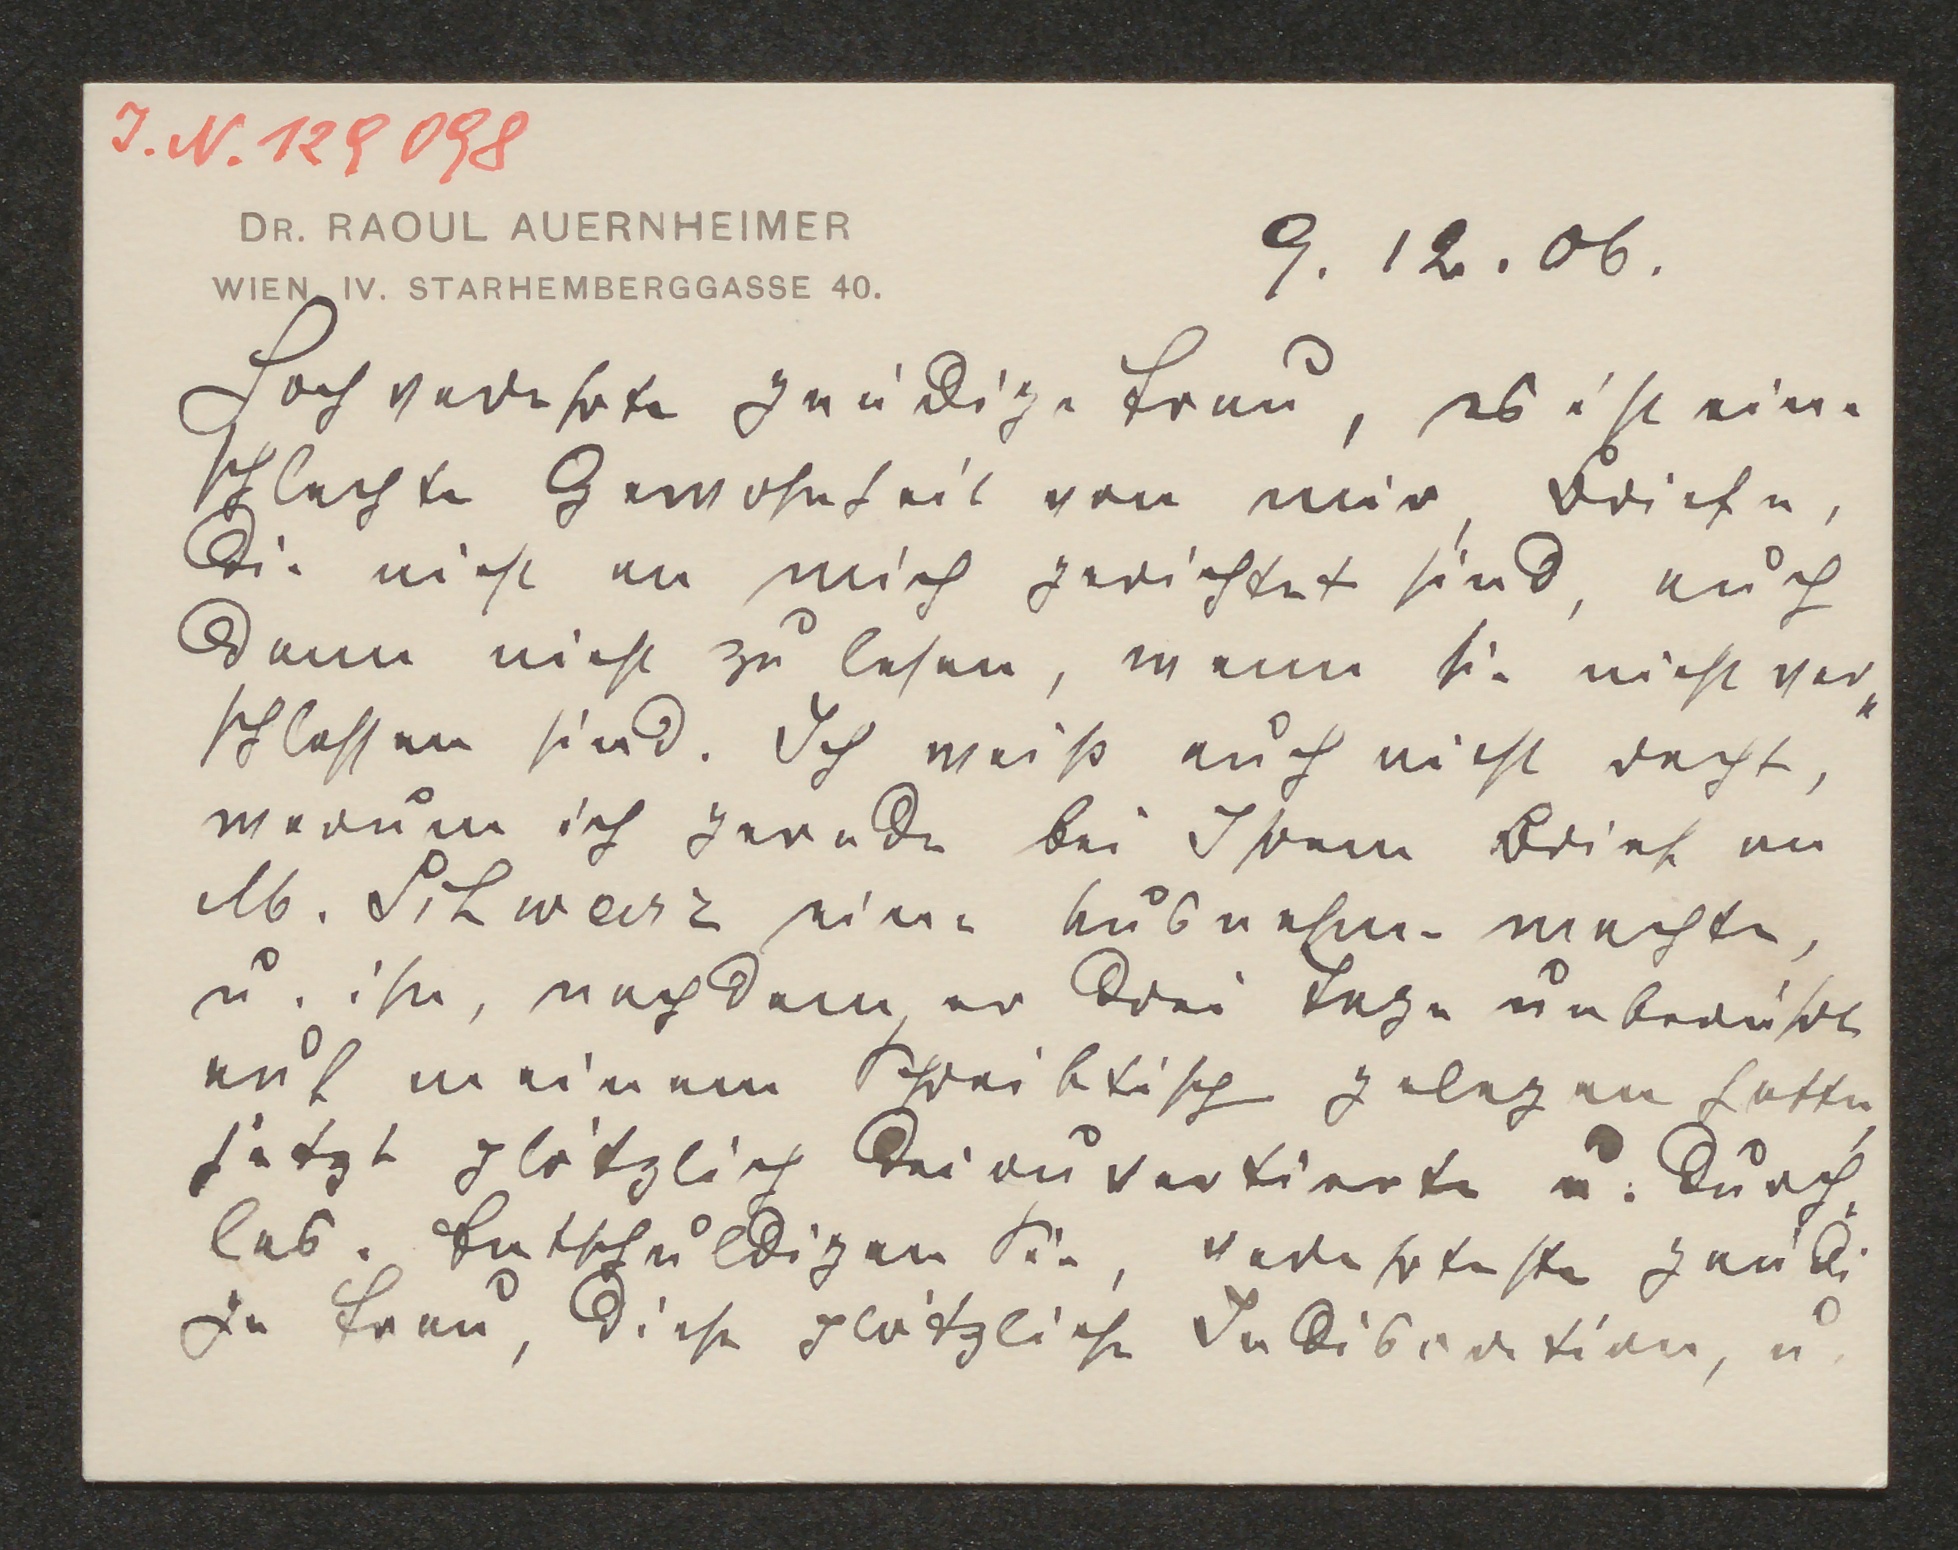 I.N. 129 098
DR. RAOUL AUERNHEIMER
WIEN, IV. STARHEMBERGGASSE 40.
9. 12. 06.
Hochverehrte gnädige Frau, es ist eine
schlechte Gewohnheit von mir, Briefe,
die nicht an mich gerichtet sind, auch
dann nicht zu lesen, wenn sie nicht ver„
schlossen sind. Ich weiß auch nicht recht,
warum ich gerade bei Ihrem Brief an
M. Schwarz eine Ausnahme machte,
u. ihn, nachdem er drei Tage unberührt
auf meinem Schreibtisch gelegen hatte,
jetzt plötzlich u. durch,
las. Entschuldigen Sie, verehrteste gnädi
ge Frau, diese plötzliche Indiscretion, u.